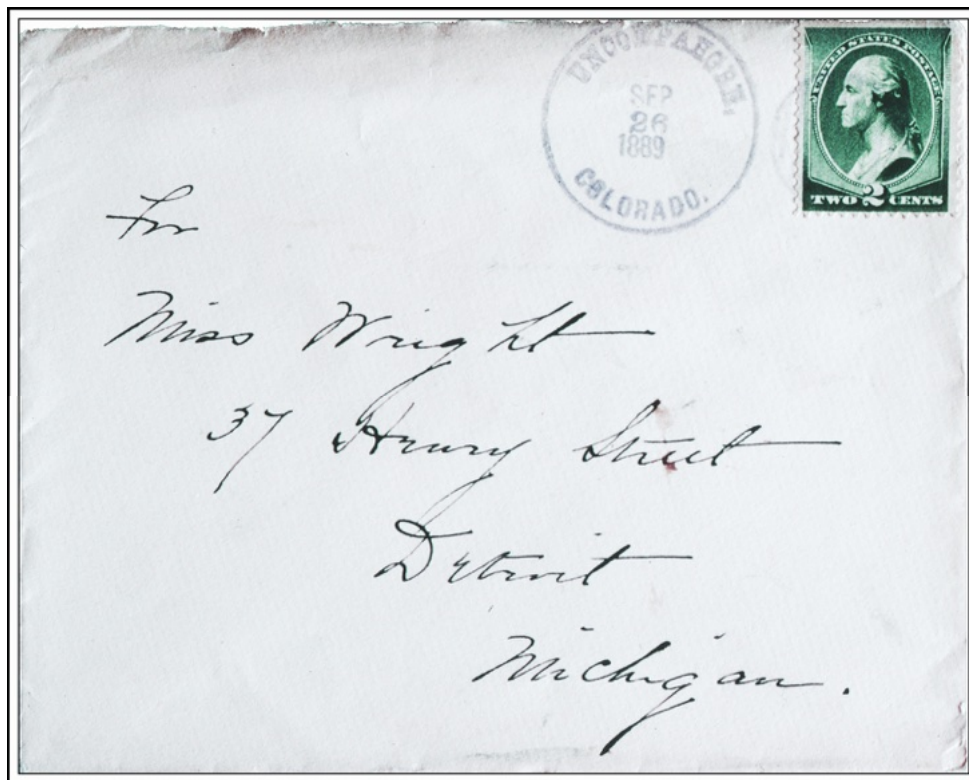 UNCOMPAHGRE,
SEP
26
1889
COLORADO.
UNITED STATES POSTAGE
TWO 2 CENTS
For
Miss Wright
37 Henry Street
Detroit
Michigan.